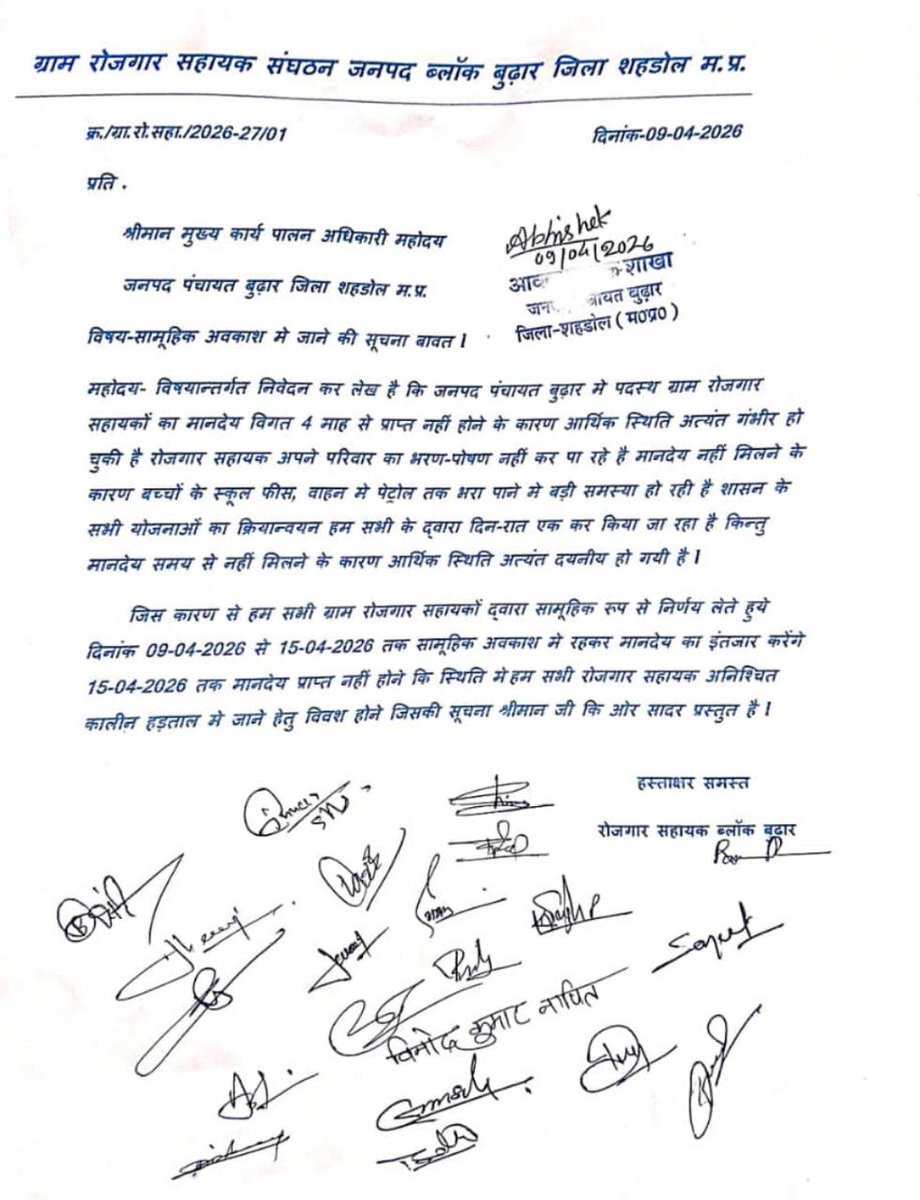 ग्राम रोजगार सहायक संघठन जनपद ब्लॉक बुढ़ार जिला शहडोल म.प्र.
क्र./ग्रा.रो.सहा./2026-27/01 दिनांक-09-04-2026
प्रति .
श्रीमान मुख्य कार्य पालन अधिकारी महोदय
जनपद पंचायत बुढ़ार जिला शहडोल म.प्र.
Abhishek
09/04/2026
शाखा
बुढ़ार
जिला-शहडोल (म०प्र०)
विषय-सामूहिक अवकाश मे जाने की सूचना बावत ।
महोदय- विषयान्तर्गत निवेदन कर लेख है कि जनपद पंचायत बुढ़ार मे पदस्थ ग्राम रोजगार
सहायकों का मानदेय विगत 4 माह से प्राप्त नहीं होने के कारण आर्थिक स्थिति अत्यंत गंभीर हो
चुकी है रोजगार सहायक अपने परिवार का भरण-पोषण नहीं कर पा रहे है मानदेय नहीं मिलने के
कारण बच्चों के स्कूल फीस, वाहन मे पेट्रोल तक भरा पाने मे बड़ी समस्या हो रही है शासन के
सभी योजनाओं का क्रियान्वयन हम सभी के द्वारा दिन-रात एक कर किया जा रहा है किन्तु
मानदेय समय से नहीं मिलने के कारण आर्थिक स्थिति अत्यंत दयनीय हो गयी है ।
जिस कारण से हम सभी ग्राम रोजगार सहायकों द्वारा सामूहिक रुप से निर्णय लेते हुये
दिनांक 09-04-2026 से 15-04-2026 तक सामूहिक अवकाश मे रहकर मानदेय का इंतजार करेंगे
15-04-2026 तक मानदेय प्राप्त नहीं होने कि स्थिति मे हम सभी रोजगार सहायक अनिश्चित
कालीन हड़ताल मे जाने हेतु विवश होने जिसकी सूचना श्रीमान जी कि ओर सादर प्रस्तुत है ।
हस्ताक्षर समस्त
रोजगार सहायक ब्लॉक बुढ़ार
विनोद कुमार नापित